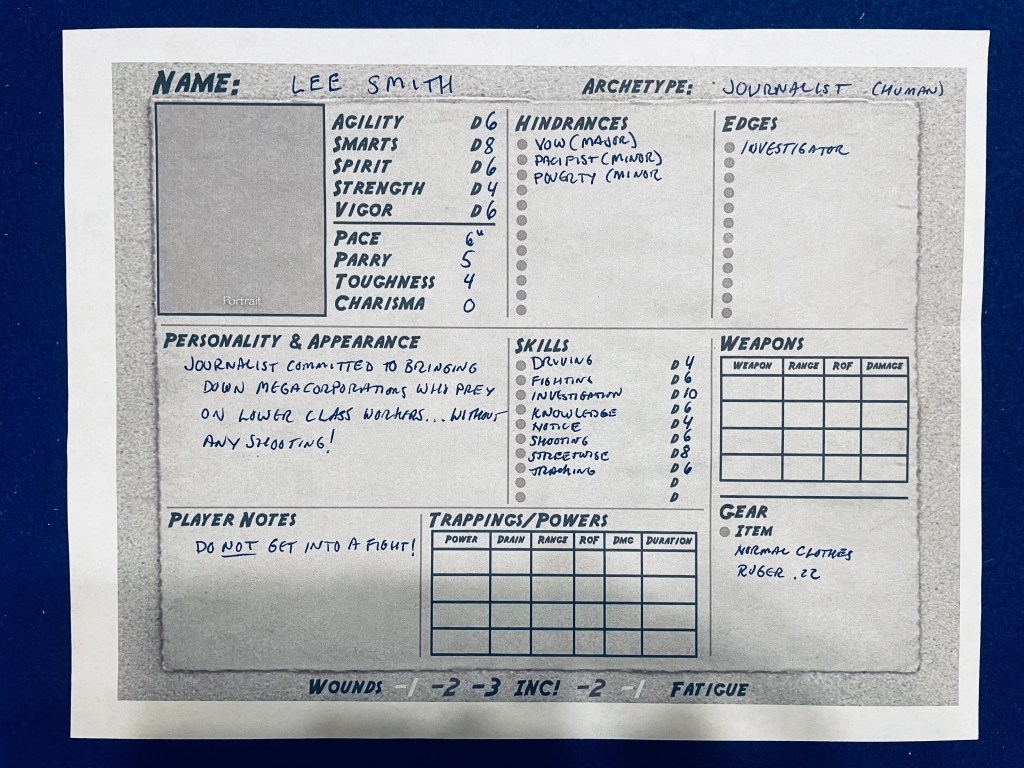 NAME: LEE SMITH ARCHETYPE: JOURNALIST (HUMAN)
Portrait
AGILITY D6
SMARTS D8
SPIRIT D6
STRENGTH D4
VIGOR D6
PACE 6"
PARRY 5
TOUGHNESS 4
CHARISMA 0
HINDRANCES
VOW (MAJOR)
PACIFIST (MINOR)
POVERTY (MINOR
EDGES
INVESTIGATOR
PERSONALITY & APPEARANCE
JOURNALIST COMMITTED TO BRINGING
DOWN MEGACORPORATIONS WHO PREY
ON LOWER CLASS WORKERS... WITHOUT
ANY SHOOTING!
SKILLS
DRIVING D4
FIGHTING D6
INVESTIGATION D10
KNOWLEDGE D6
NOTICE D4
SHOOTING D6
STREETWISE D8
TRACKING D6
D
D
WEAPONS
WEAPON RANGE ROF DAMAGE
PLAYER NOTES
DO NOT GET INTO A FIGHT!
TRAPPINGS/POWERS
POWER DRAIN RANGE ROF DMG DURATION
GEAR
ITEM
NORMAL CLOTHES
RUGER .22
WOUNDS -1 -2 -3 INC! -2 -1 FATIGUE